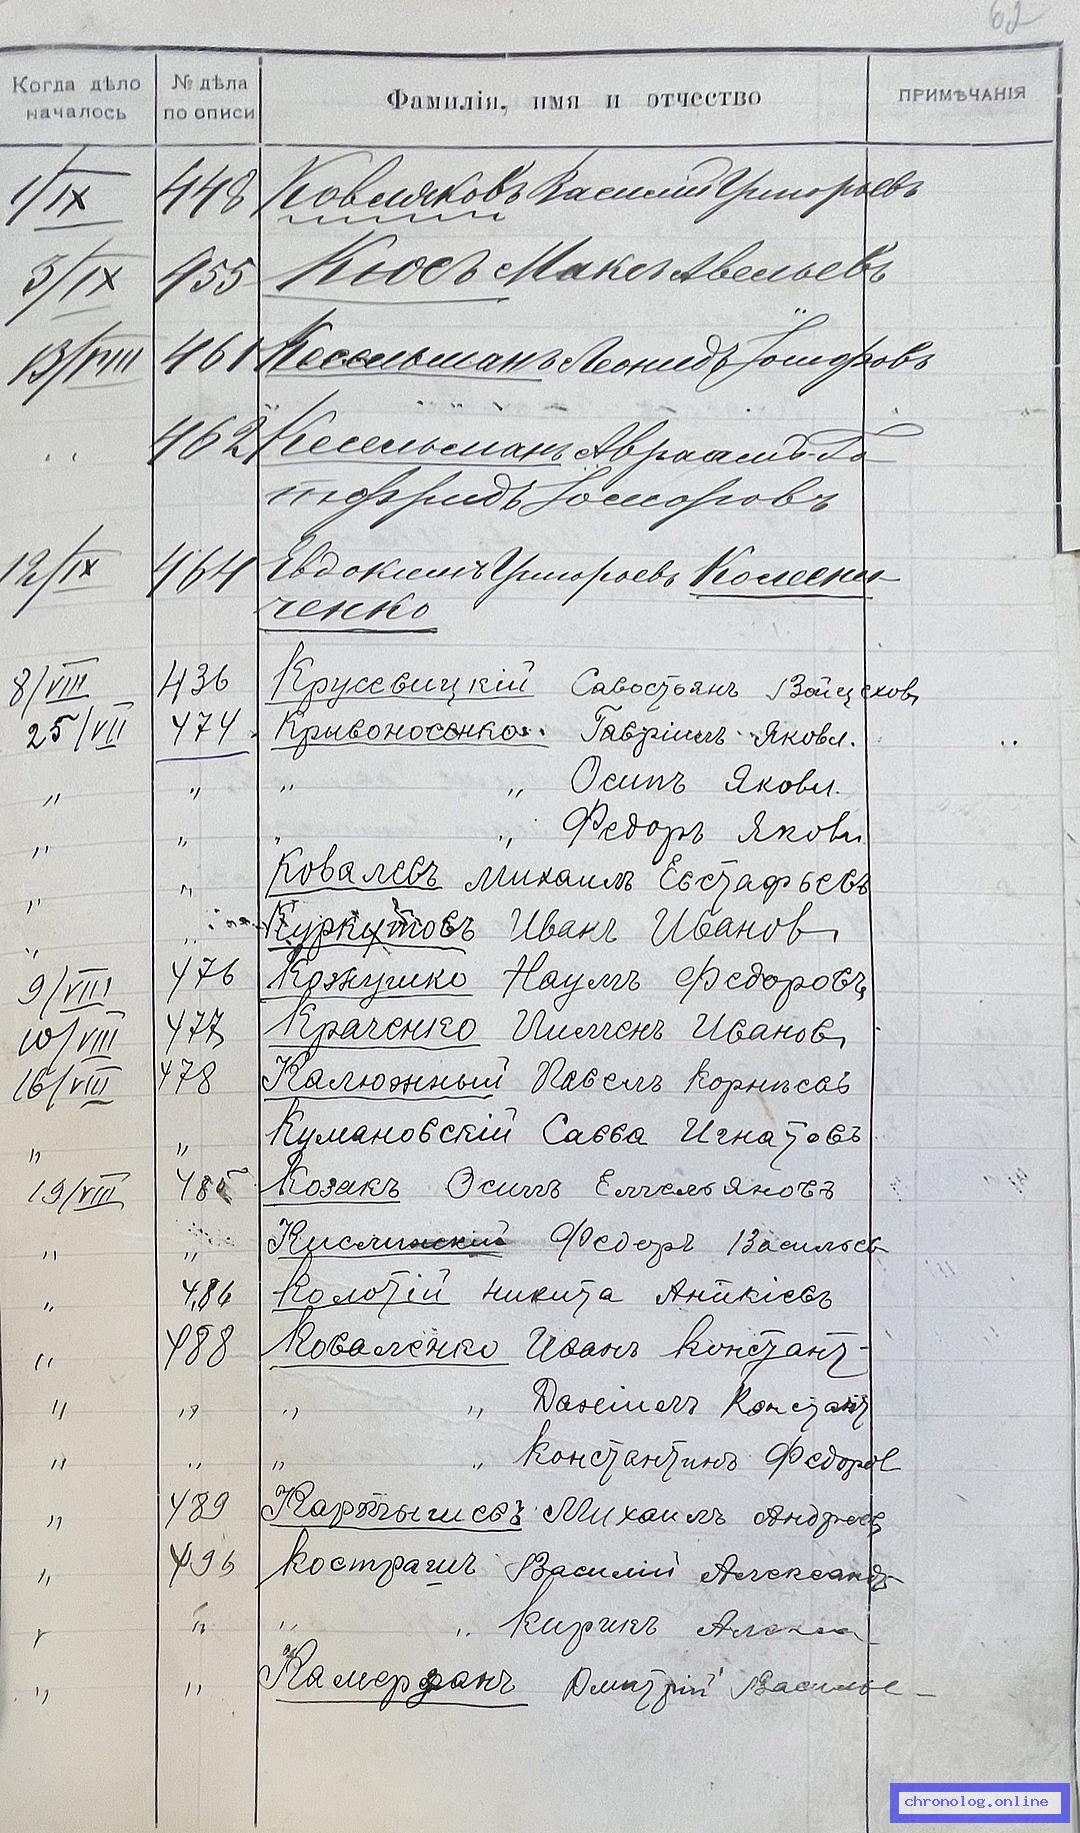 62
Когда дѣло началось № дѣла по описи Фамилія, имя и отчество ПРИМѢЧАНІЯ
1/IX 448 Ковмяковъ Василій Григорьевъ
5/IX 455 Кюсъ Максъ Авельевъ
13/VIII 461 Кесельманъ Леонидъ Іосифовъ
" 462 Кесельманъ Авраамъ-Го-
тфридъ Іосифовъ
12/IX 464 Евдокимъ Григорьевъ Колесни-
ченко
8/VIII 436 Крусевицкій Савостьянъ Войцехов
25/VII 474 Кривоносенко Гавріилъ Яковл.
" " " " Осипъ Яковл.
" " " " Федоръ Яковл
" " Ковалевъ Михаилъ Евстафьевъ
" " Куркутовъ Иванъ Иванов
9/VIII 476 Кожушко Наумъ Федоровъ
10/VIII 477 Краченко Пименъ Иванов
16/VIII 478 Калюжный Павелъ Корнѣевъ
" " Кумановскій Савва Игнатовъ
19/VIII 485 Козакъ Осипъ Емельяновъ
" " Федоръ Васильев
" 486 Колотій Никита Аникіевъ
" 488 Коваленко Иванъ Констант-
" " " " Даніилъ Констант
" " " " Константинъ Федоров
" 489 Картышевъ Михаилъ Андреев
" 496 Василій Александ-
" " " " Кирикъ
" " Дмитрій Василье-
chronolog.online